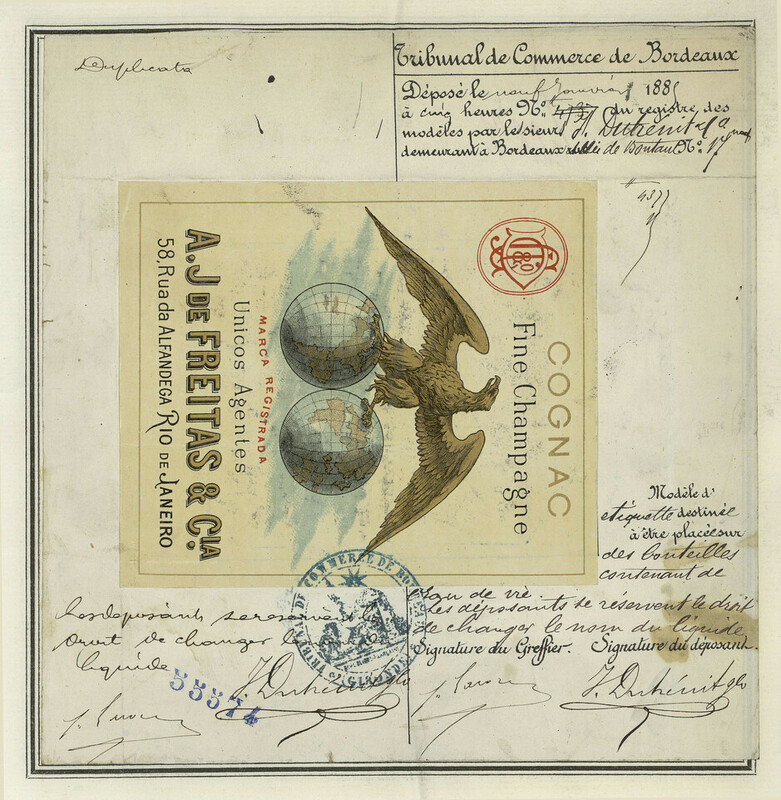 Duplicata
Tribunal de Commerce de Bordeaux
Déposé le neuf Janvier 188
à cinq heures No. du registre des
modèles par le sieur J. Dutrénit & Ca
demeurant à Bordeaux No. 17
4377
COGNAC
Fine Champagne
MARCA REGISTRADA
Unicos Agentes
A. J DE FREITAS & CIA.
58, Rua da ALFANDEGA RIO DE JANEIRO
Modèle d'
etiquette destinée
à être placée sur
des bouteilles
contenant de
Eau de vie
Les déposants se réservent le droit
de changer le nom du liquide
Signature du Greffier. Signature du déposant.
J. Dutrénit & Co
Les deposants se reservent le
droit de changer le
liquide
TRIBUNAL DE COMMERCE DE BORDEAUX
GIRONDE
55574
J. Dutrénit & Co